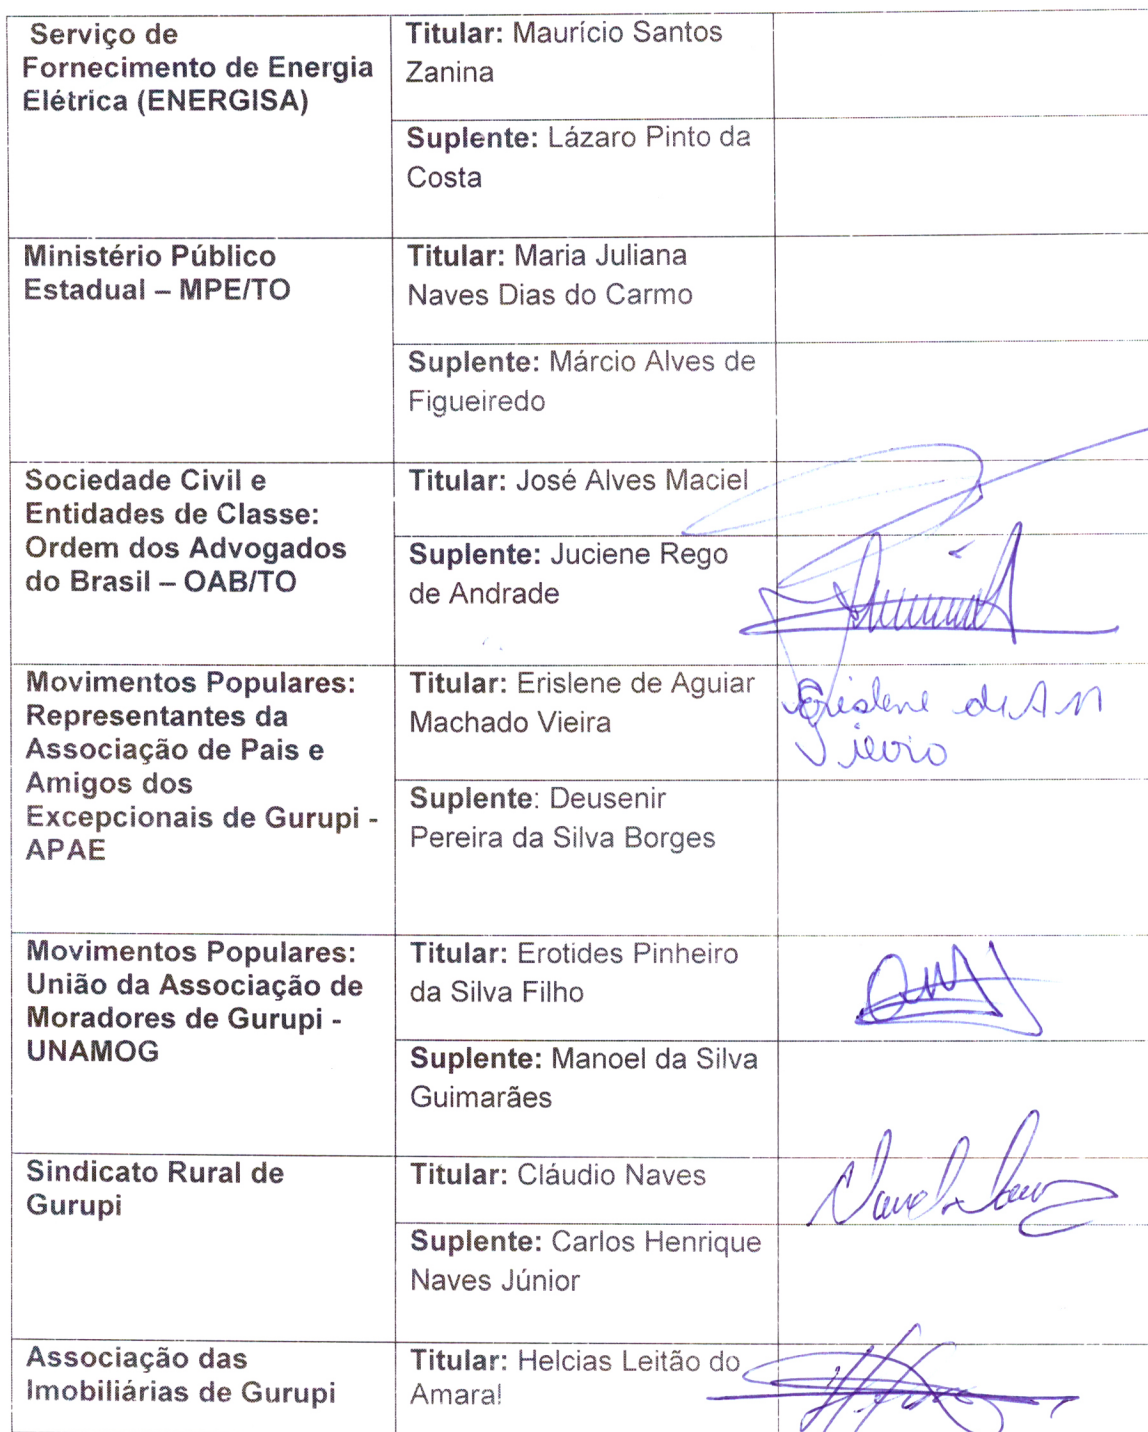 Serviço de
Fornecimento de Energia
Elétrica (ENERGISA)
Titular: Maurício Santos
Zanina
Suplente: Lázaro Pinto da
Costa
Ministério Público
Estadual – MPE/TO
Titular: Maria Juliana
Naves Dias do Carmo
Suplente: Márcio Alves de
Figueiredo
Sociedade Civil e
Entidades de Classe:
Ordem dos Advogados
do Brasil – OAB/TO
Titular: José Alves Maciel
Suplente: Juciene Rego
de Andrade
Movimentos Populares:
Representantes da
Associação de Pais e
Amigos dos
Excepcionais de Gurupi -
APAE
Titular: Erislene de Aguiar
Machado Vieira
Erislene de A M
Vieira
Suplente: Deusenir
Pereira da Silva Borges
Movimentos Populares:
União da Associação de
Moradores de Gurupi -
UNAMOG
Titular: Erotides Pinheiro
da Silva Filho
Suplente: Manoel da Silva
Guimarães
Sindicato Rural de
Gurupi
Titular: Cláudio Naves
Suplente: Carlos Henrique
Naves Júnior
Associação das
Imobiliárias de Gurupi
Titular: Helcias Leitão do
Amaral